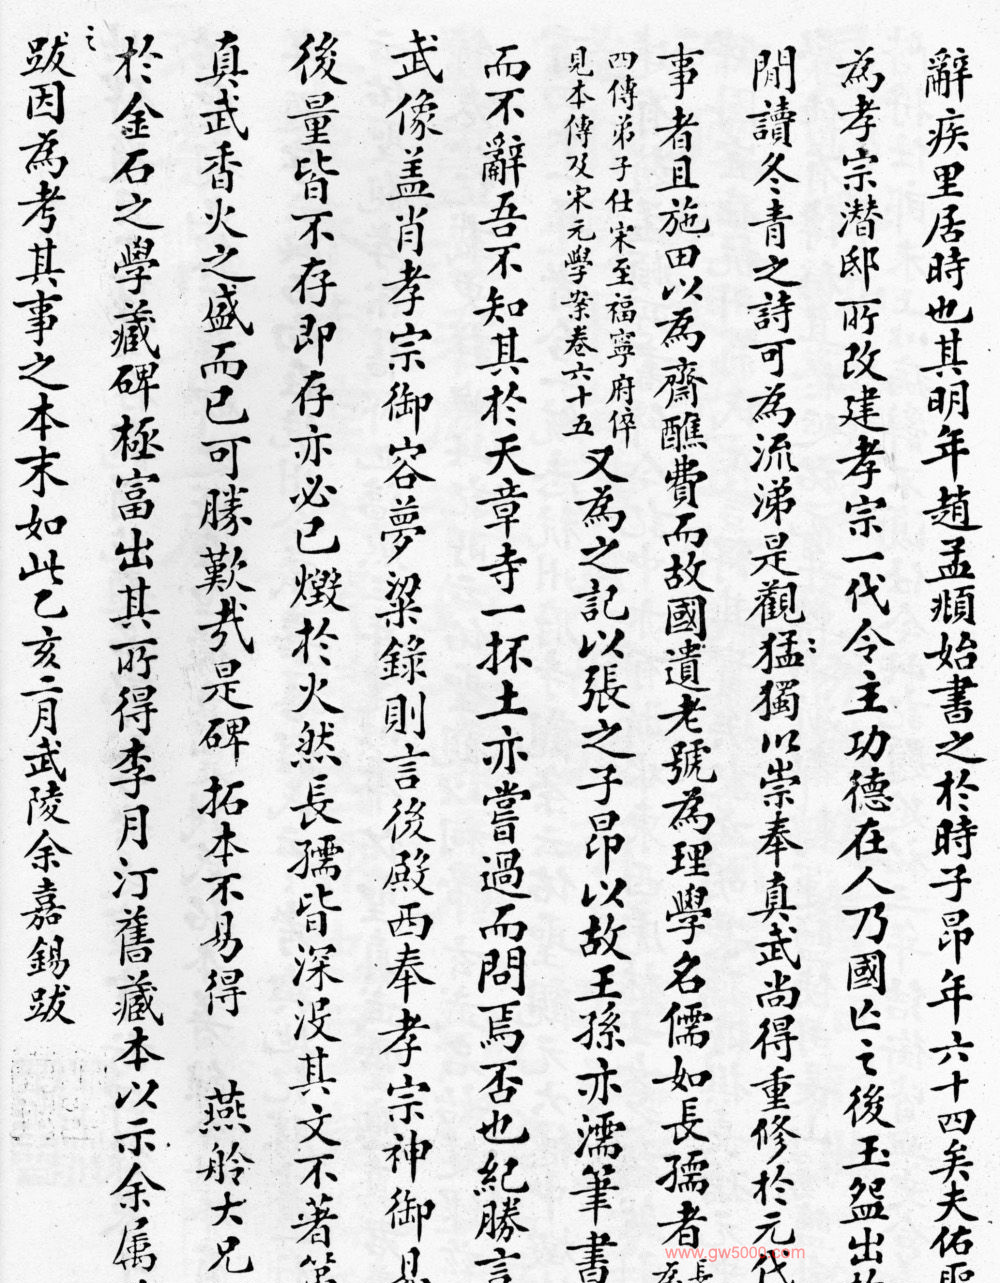 辭疾里居時也其明年趙孟頫始書之於時子昂年六十四矣夫佑聖
為孝宗潛邸所改建孝宗一代令主功德在人乃國亡之後玉盌出
閒讀冬青之詩可為流涕是觀猛獨以崇奉真武尚得重修於元代
事者且施田以為齋醮費而故國遺老號為理學名儒如長孺者
長
四傳弟子仕宋至福寧府倅
見本傳及宋元學案卷六十五
又為之記以張之子昂以故王孫亦濡筆書
而不辭吾不知其於天章寺一抔土亦嘗過而問焉否也紀勝言
武像盖肖孝宗御容夢粱錄則言後殿西奉孝宗神御
後量皆不存即存亦必已燬於火然長孺皆深没其文不著
真武香火之盛而已可勝歎哉是碑拓本不易得 燕舲大兄
於金石之學藏碑極富出其所得李月汀舊藏本以示余属
之
跋因為考其事之本末如此乙亥二月武陵余嘉錫跋
www.gw5000.com